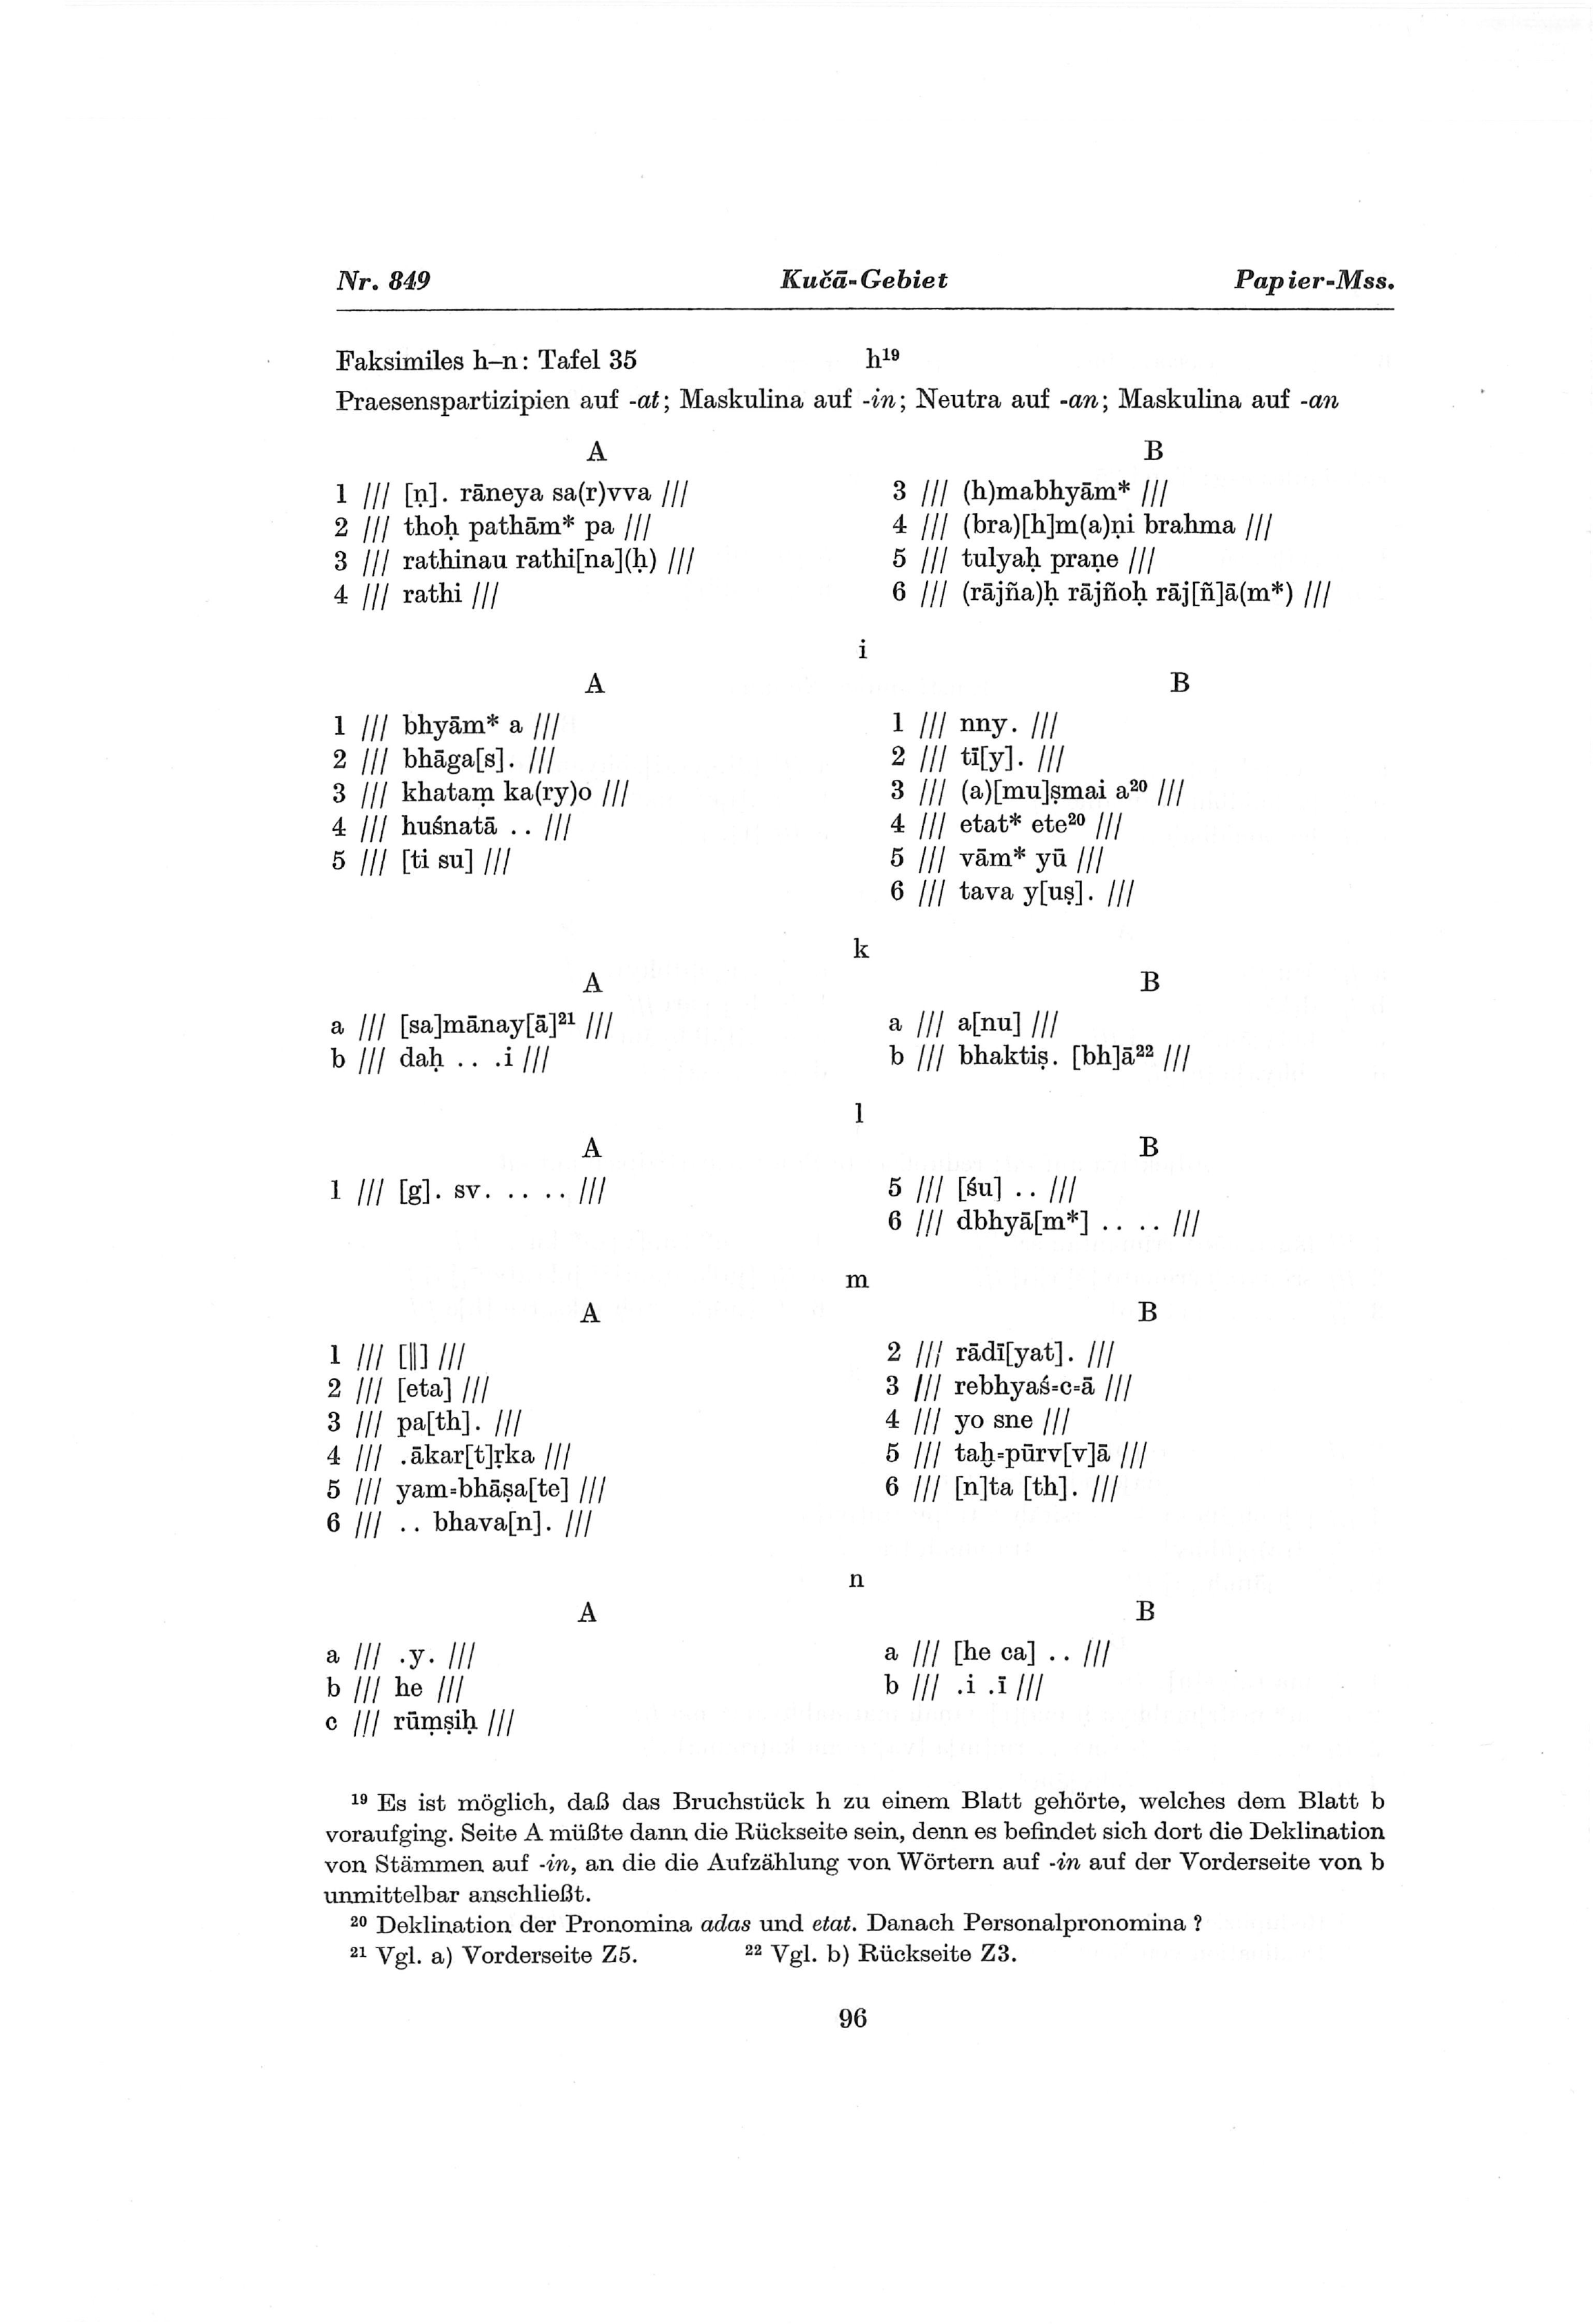 Nr. 849 Kučā-Gebiet Papier-Mss.
Faksimiles h–n: Tafel 35 h¹⁹
Praesenspartizipien auf -at; Maskulina auf -in; Neutra auf -an; Maskulina auf -an
A
1 /// [ṇ]. rāneya sa(r)vva ///
2 /// thoḥ pathām* pa ///
3 /// rathinau rathi[na](ḥ) ///
4 /// rathi ///
B
3 /// (h)mabhyām* ///
4 /// (bra)[h]m(a)ṇi brahma ///
5 /// tulyaḥ praṇe ///
6 /// (rājña)ḥ rājñoḥ rāj[ñ]ā(m*) ///
i
A
1 /// bhyām* a ///
2 /// bhāga[s]. ///
3 /// khataṃ ka(ry)o ///
4 /// huśnatā .. ///
5 /// [ti su] ///
B
1 /// nny. ///
2 /// tī[y]. ///
3 /// (a)[mu]ṣmai a²⁰ ///
4 /// etat* ete²⁰ ///
5 /// vām* yū ///
6 /// tava y[uṣ]. ///
k
A
a /// [sa]mānay[ā]²¹ ///
b /// daḥ .. .i ///
B
a /// a[nu] ///
b /// bhaktiṣ. [bh]ā²² ///
l
A
1 /// [g]. sv. .. .. ///
B
5 /// [śu] .. ///
6 /// dbhyā[m*] .. .. ///
m
A
1 /// [||] ///
2 /// [eta] ///
3 /// pa[th]. ///
4 /// .ākar[t]ṛka ///
5 /// yam=bhāṣa[te] ///
6 /// .. bhava[n]. ///
B
2 /// rādī[yat]. ///
3 /// rebhyaś=c=ā ///
4 /// yo sne ///
5 /// taḫ=pūrv[v]ā ///
6 /// [n]ta [th]. ///
n
A
a /// .y. ///
b /// he ///
c /// rūṃṣiḥ ///
B
a /// [he ca] .. ///
b /// .i .ī ///
¹⁹ Es ist möglich, daß das Bruchstück h zu einem Blatt gehörte, welches dem Blatt b
voraufging. Seite A müßte dann die Rückseite sein, denn es befindet sich dort die Deklination
von Stämmen auf -in, an die die Aufzählung von Wörtern auf -in auf der Vorderseite von b
unmittelbar anschließt.
²⁰ Deklination der Pronomina adas und etat. Danach Personalpronomina ?
²¹ Vgl. a) Vorderseite Z5. ²² Vgl. b) Rückseite Z3.
96